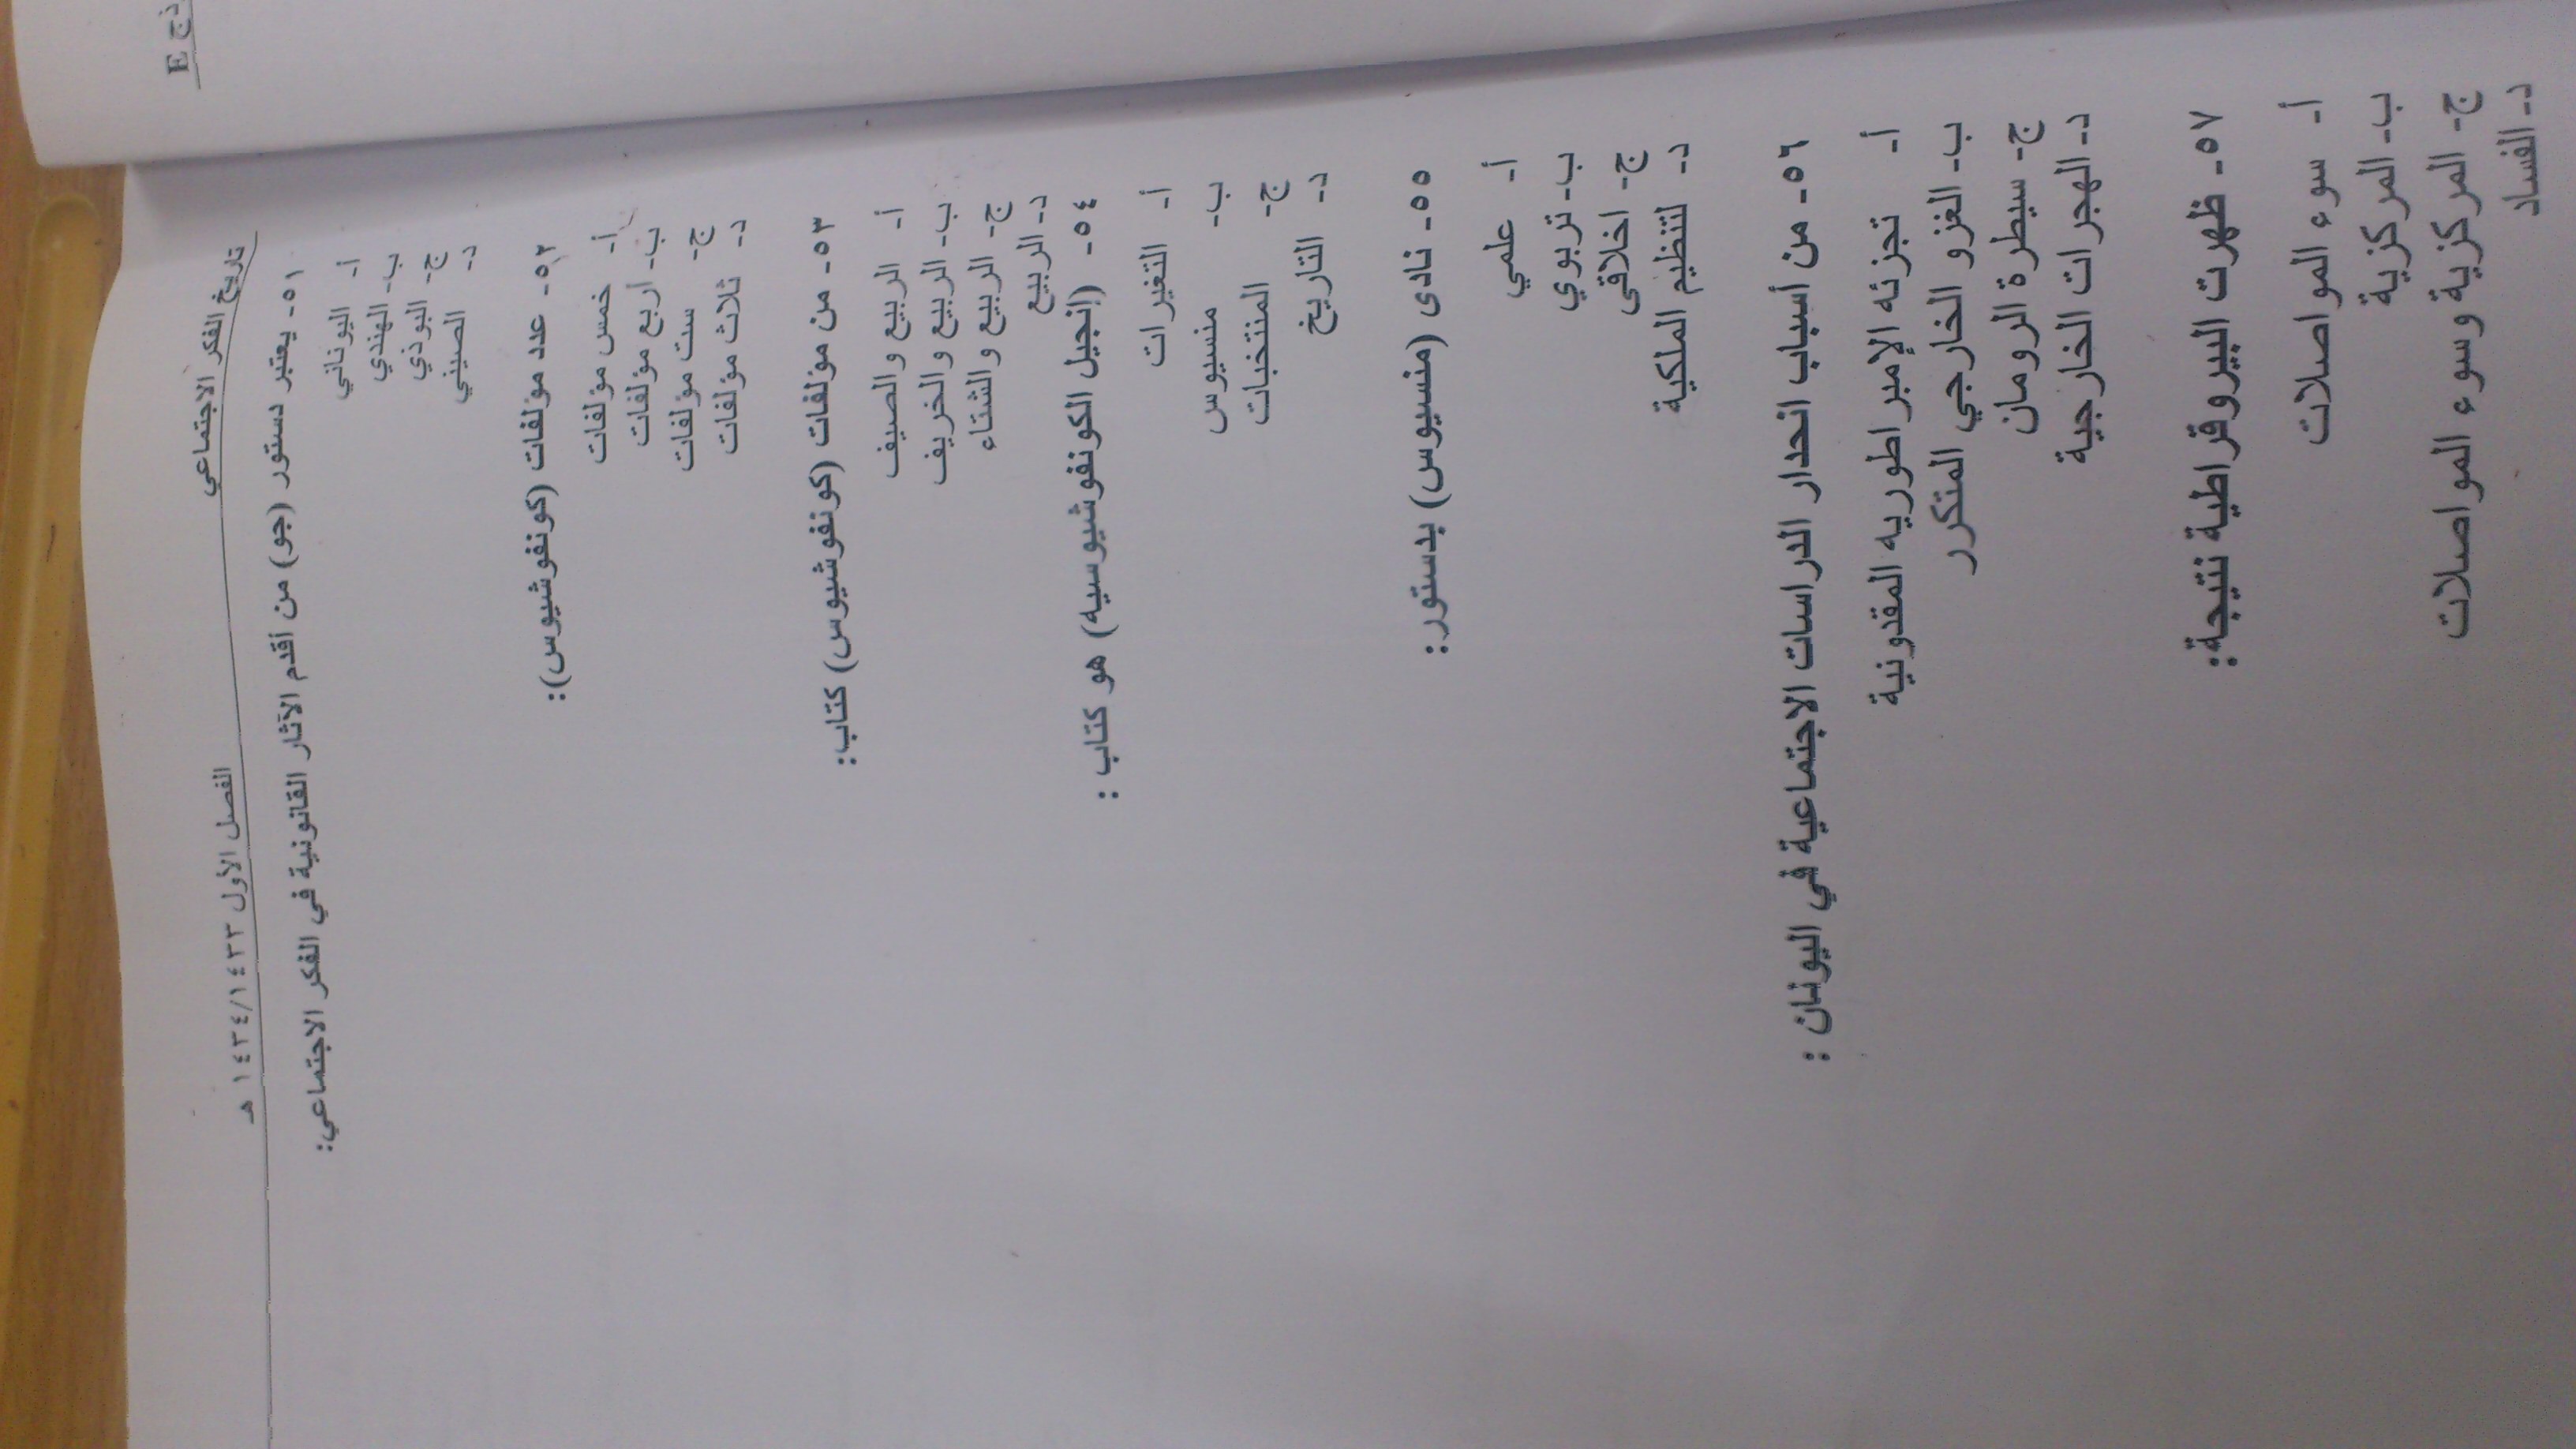 ذج E
تاريخ الفكر الاجتماعي الفصل الأول ١٤٣٤/١٤٣٣ هـ
٥١- يعتبر دستور (جو) من أقدم الآثار القانونية في الفكر الاجتماعي:
أ- اليوناني
ب- الهندي
ج- البوذي
د- الصيني
٥٢- عدد مؤلفات (كونفوشيوس):
أ- خمس مؤلفات
ب- أربع مؤلفات
ج- ست مؤلفات
د- ثلاث مؤلفات
٥٣- من مؤلفات (كونفوشيوس) كتاب:
أ- الربيع والصيف
ب- الربيع والخريف
ج- الربيع والشتاء
د- الربيع
٥٤- (إنجيل الكونفوشيوسيه) هو كتاب :
أ- التغيرات
ب- منسيوس
ج- المنتخبات
د- التاريخ
٥٥- نادى (منسيوس) بدستور:
أ- علمي
ب- تربوي
ج- اخلاقي
د- لتنظيم الملكية
٥٦- من أسباب انحدار الدراسات الاجتماعية في اليونان :
أ- تجزئه الإمبراطوريه المقدونية
ب- الغزو الخارجي المتكرر
ج- سيطرة الرومان
د- الهجرات الخارجية
٥٧- ظهرت البيروقراطية نتيجة:
أ- سوء المواصلات
ب- المركزية
ج- المركزية وسوء المواصلات
د- الفساد